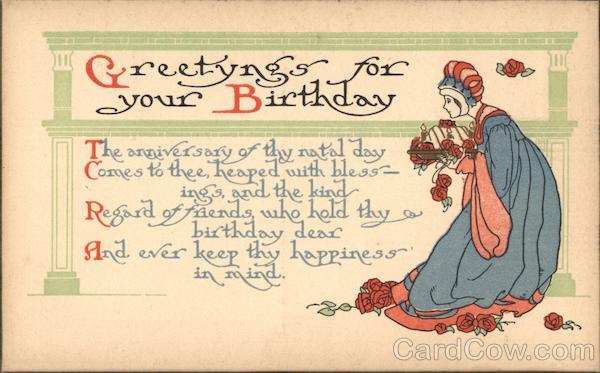 Greetyngs for
your Birthday
The anniversary of thy natal day
Comes to thee, heaped with bless—
ings, and the kind
Regard of friends, who hold thy
birthday dear
And ever keep thy happiness
in mind.
CardCow.com